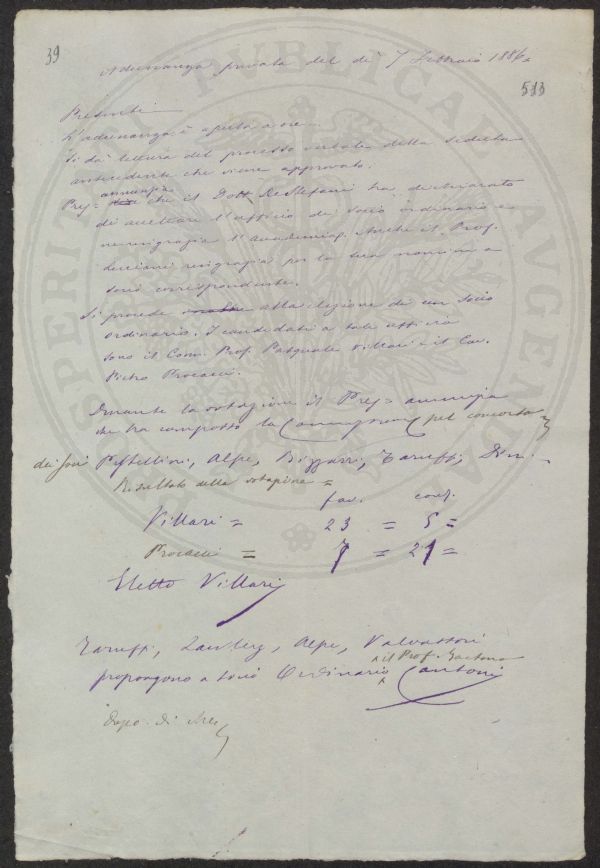 39
Adunanza privata del dì 7 Febbraio 1886
513
Presenti
L'adunanza è aperta a ore
Si dà lettura del processo verbale della seduta
antecedente che viene approvato.
annunzia
Pres= che il Dott. De Stefani ha dichiarato
di accettare l'ufficio di socio ordinario e
ne ringrazia l'Accademia. Anche il Prof.
Luciani ringrazia per la sua nomina a
socio corrispondente.
Si procede alla elezione di un Socio
ordinario. I candidati a tale ufficio
sono il Com. Prof. Pasquale Villari e il Cav.
Pietro Procacci.
Durante la votazione il Pres= annunzia
che ha composto la Commissione pel concorso
dei Soci Pestellini, Alpe, Bizzarri, Taruffi,
Resultato della votazione =
fav. cont.
Villari = 23 = 5 =
Procacci = 7 = 21 =
Eletto Villari
Taruffi, Lawley, Alpe, Valvassori
il Prof. Gaetano
propongono a socio Ordinario Cantoni